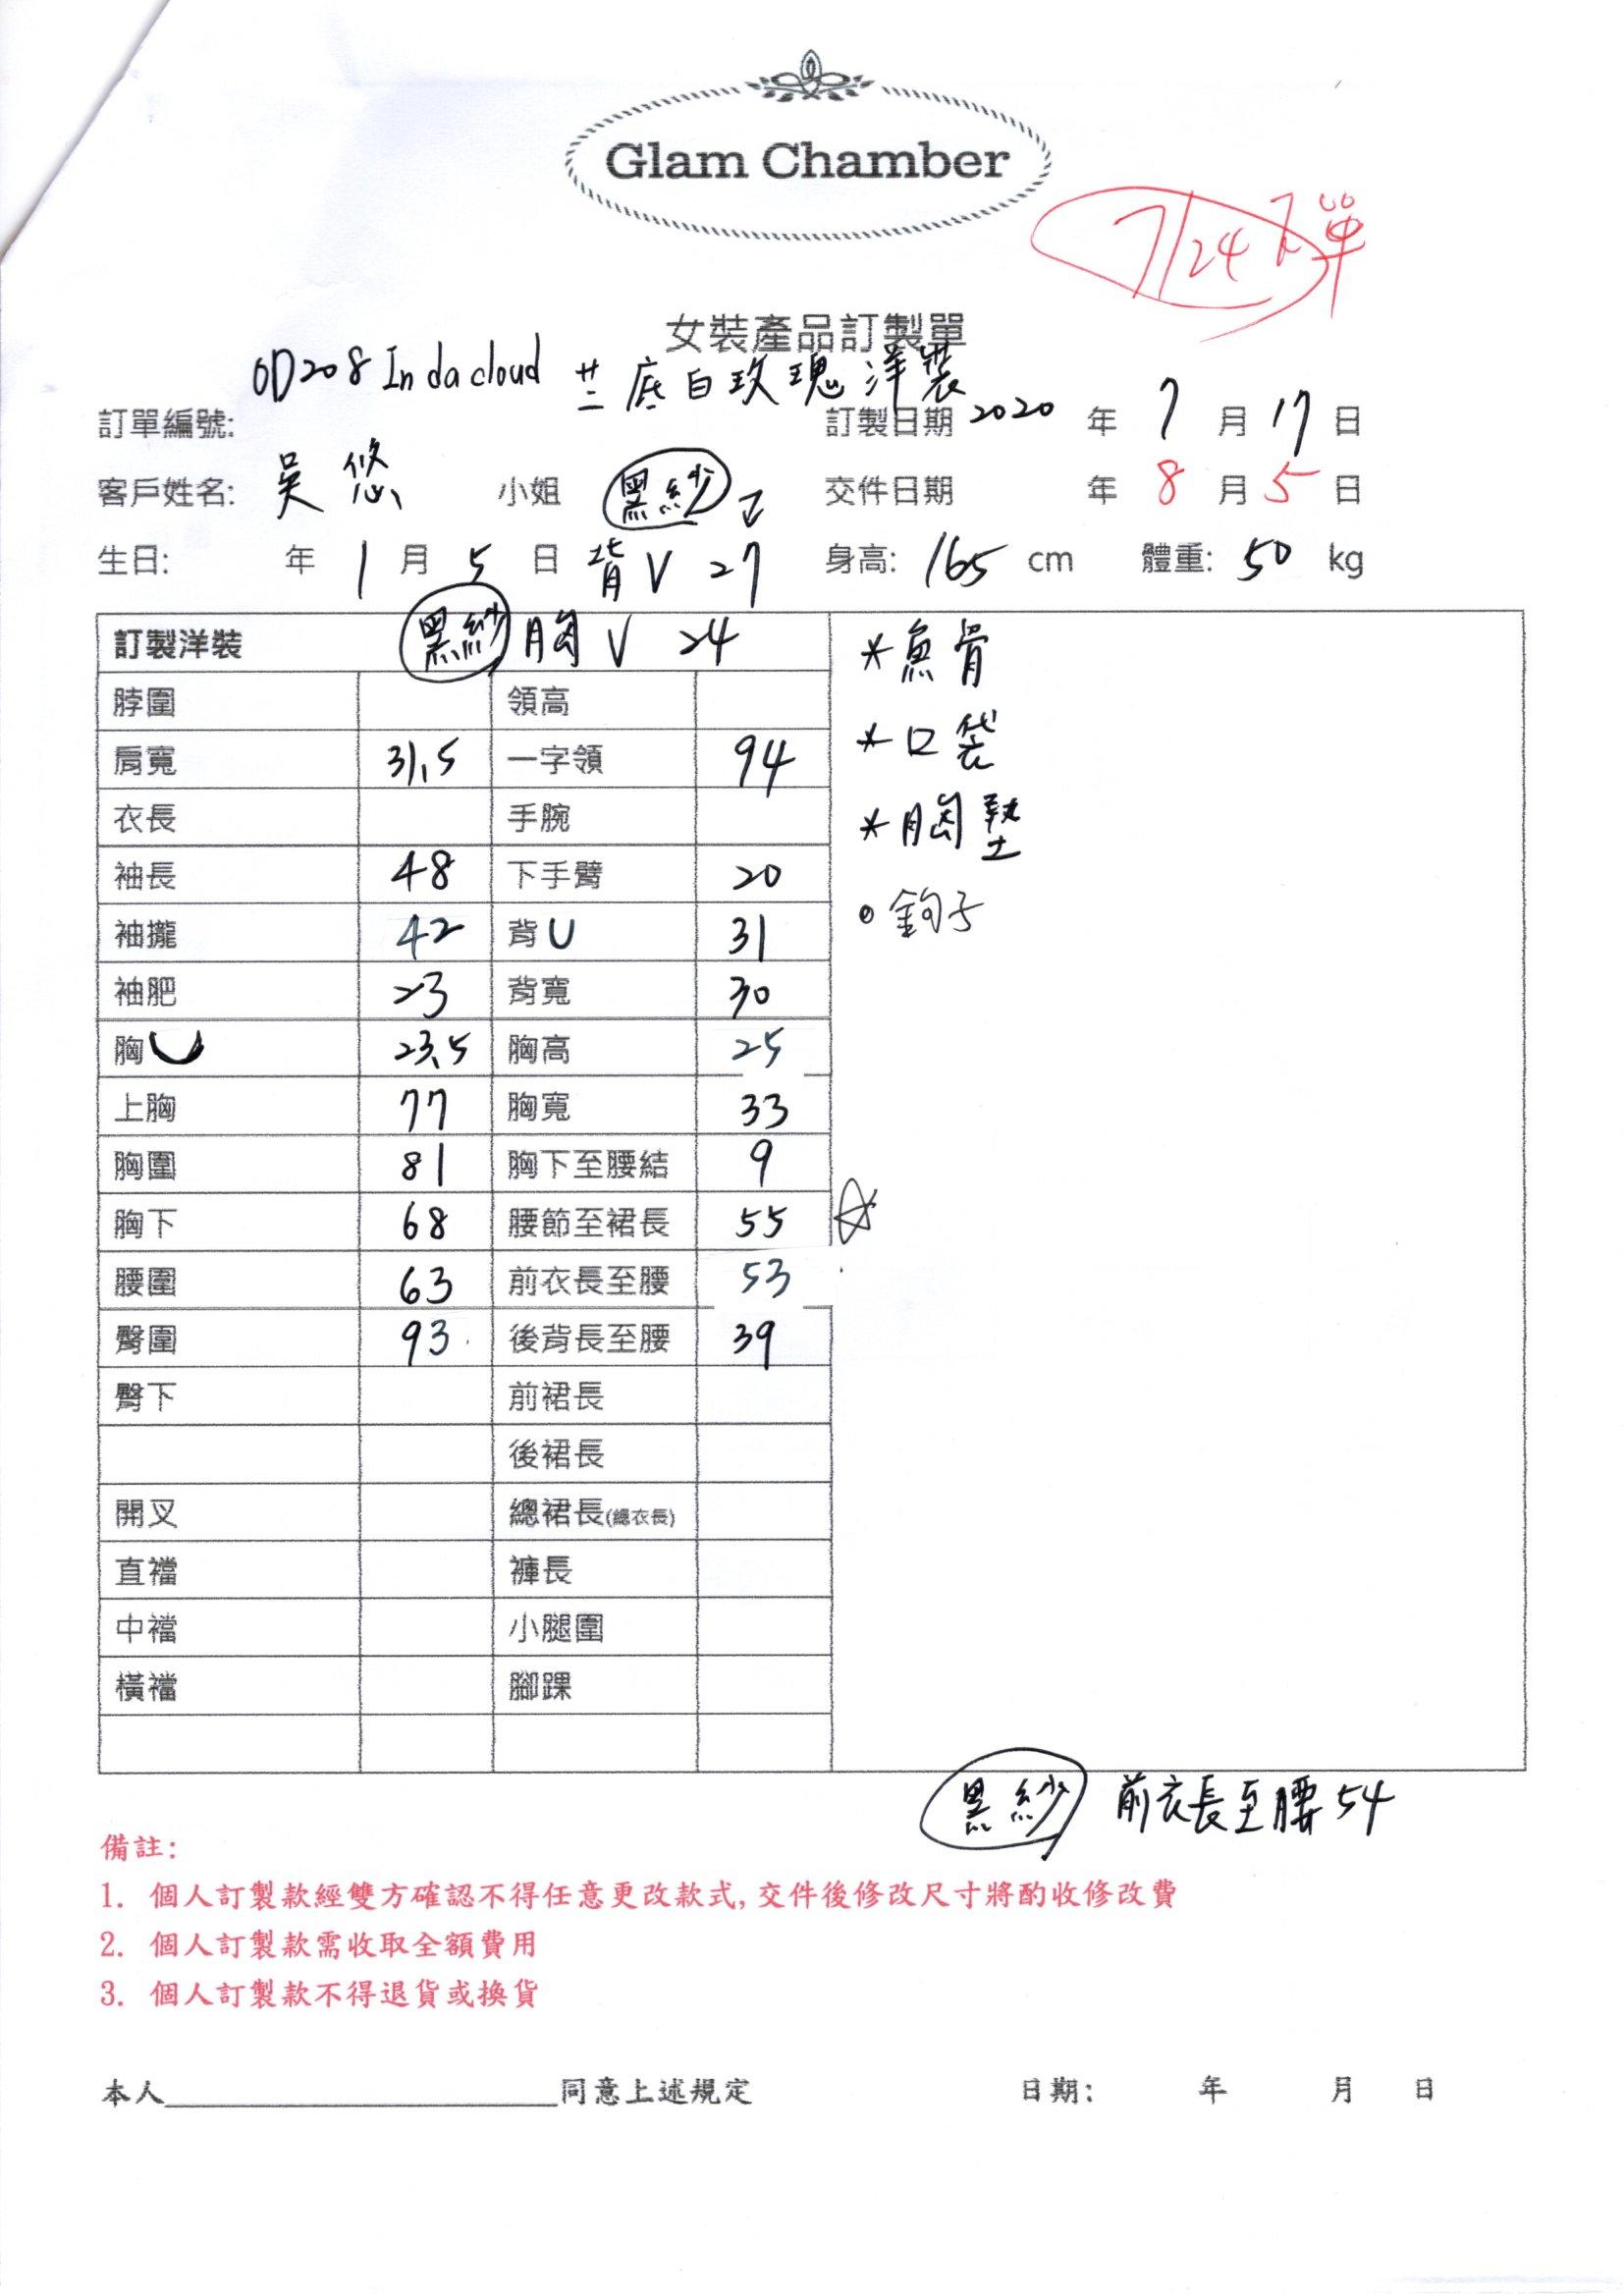 Glam Chamber
7/24 下單
女裝產品訂製單
OD208 In da cloud 底白玫瑰洋裝
訂單編號: 訂製日期 2020 年 7 月 17 日
客戶姓名: 吳悠 小姐 黑紗 交件日期 年 8 月 5 日
生日: 年 1 月 5 日 背V 27 身高: 165 cm 體重: 50 kg
訂製洋裝 黑紗 胸V 24
脖圍 領高
肩寬 31.5 一字領 94
衣長 手腕
袖長 48 下手臂 20
袖攏 42 背U 31
袖肥 23 背寬 30
胸U 23.5 胸高 25
上胸 77 胸寬 33
胸圍 81 胸下至腰結 9
胸下 68 腰節至裙長 55 ☆
腰圍 63 前衣長至腰 53
臀圍 93 後背長至腰 39
臀下 前裙長
後裙長
開叉 總裙長(總衣長)
直襠 褲長
中襠 小腿圍
橫襠 腳踝
*魚骨
*口袋
*胸墊
•鉤子
黑紗 前衣長至腰54
備註:
1. 個人訂製款經雙方確認不得任意更改款式,交件後修改尺寸將酌收修改費
2. 個人訂製款需收取全額費用
3. 個人訂製款不得退貨或換貨
本人 同意上述規定 日期: 年 月 日